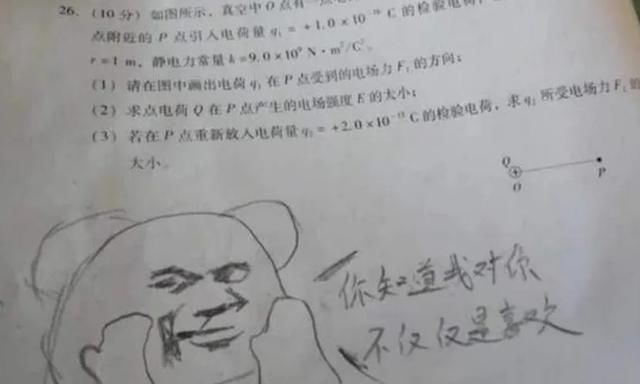 26. (10分) 如图所示，真空中O点有一点电
点附近的P点引入电荷量q₁=+1.0×10 C的检验电荷，
r=1 m，静电力常量k=9.0×10⁹ N·m²/C²。
(1) 请在图中画出电荷q₁在P点受到的电场力F₁的方向；
(2) 求点电荷Q在P点产生的电场强度E的大小；
(3) 若在P点重新放入电荷量q₂=+2.0×10 C的检验电荷，求q₂所受电场力F₂的
大小。
Q
O
P
你知道我对你
不仅仅是喜欢